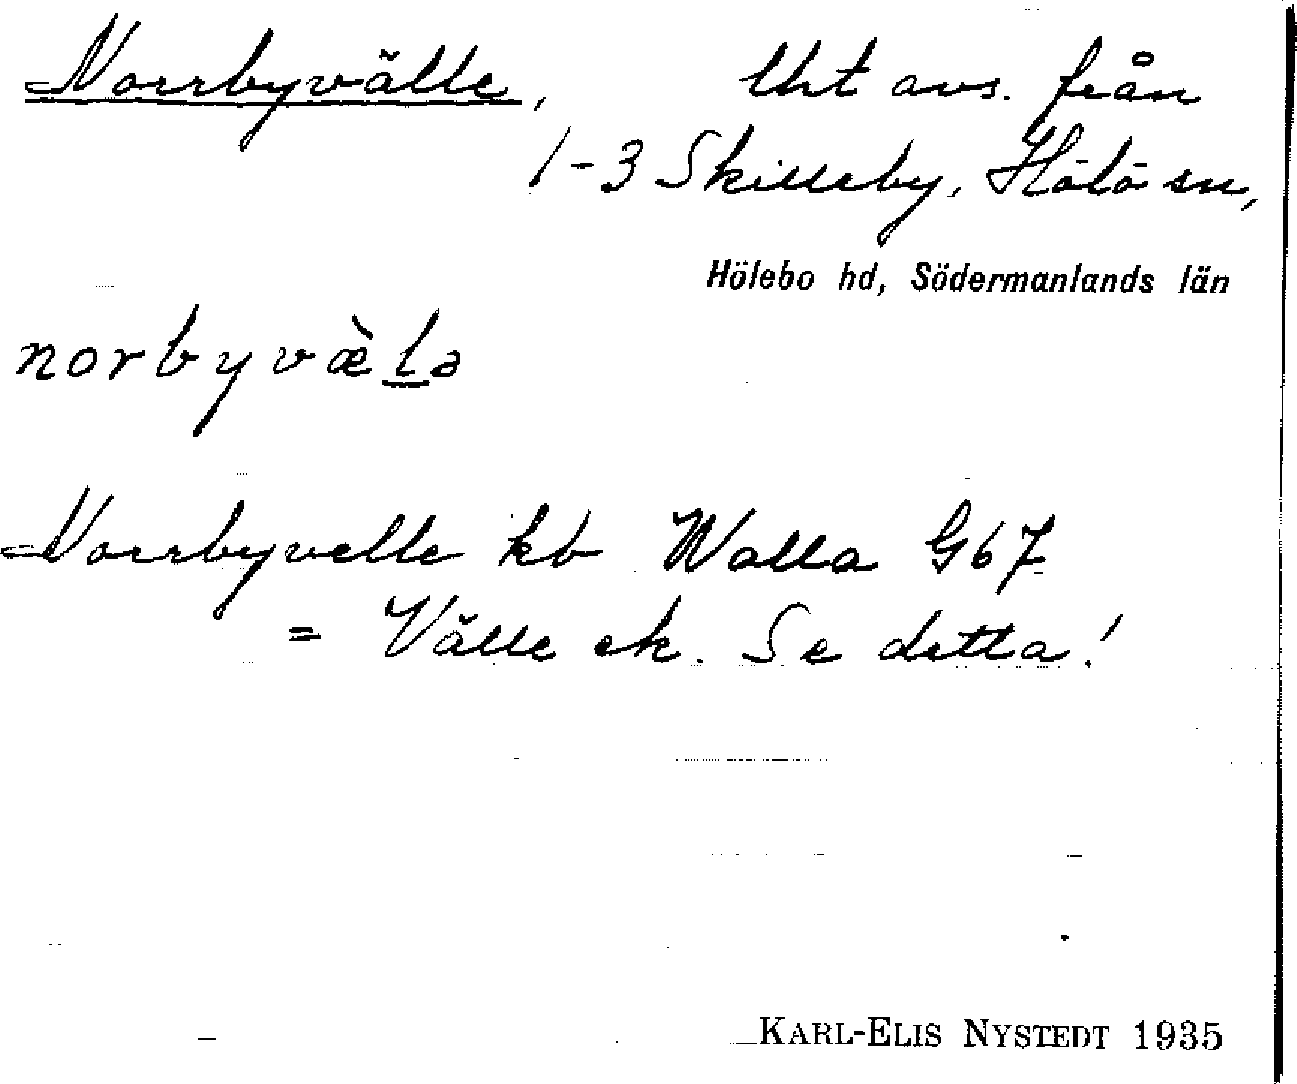 Norrbyvälle, Uht avs. från
1-3 Skilleby, Hölö sn,
Hölebo hd, Södermanlands län
norbyvæ̀l̲ə
Norrbyvelle kb Walla G67
= Välle ek. Se detta!
KARL-ELIS NYSTEDT 1935